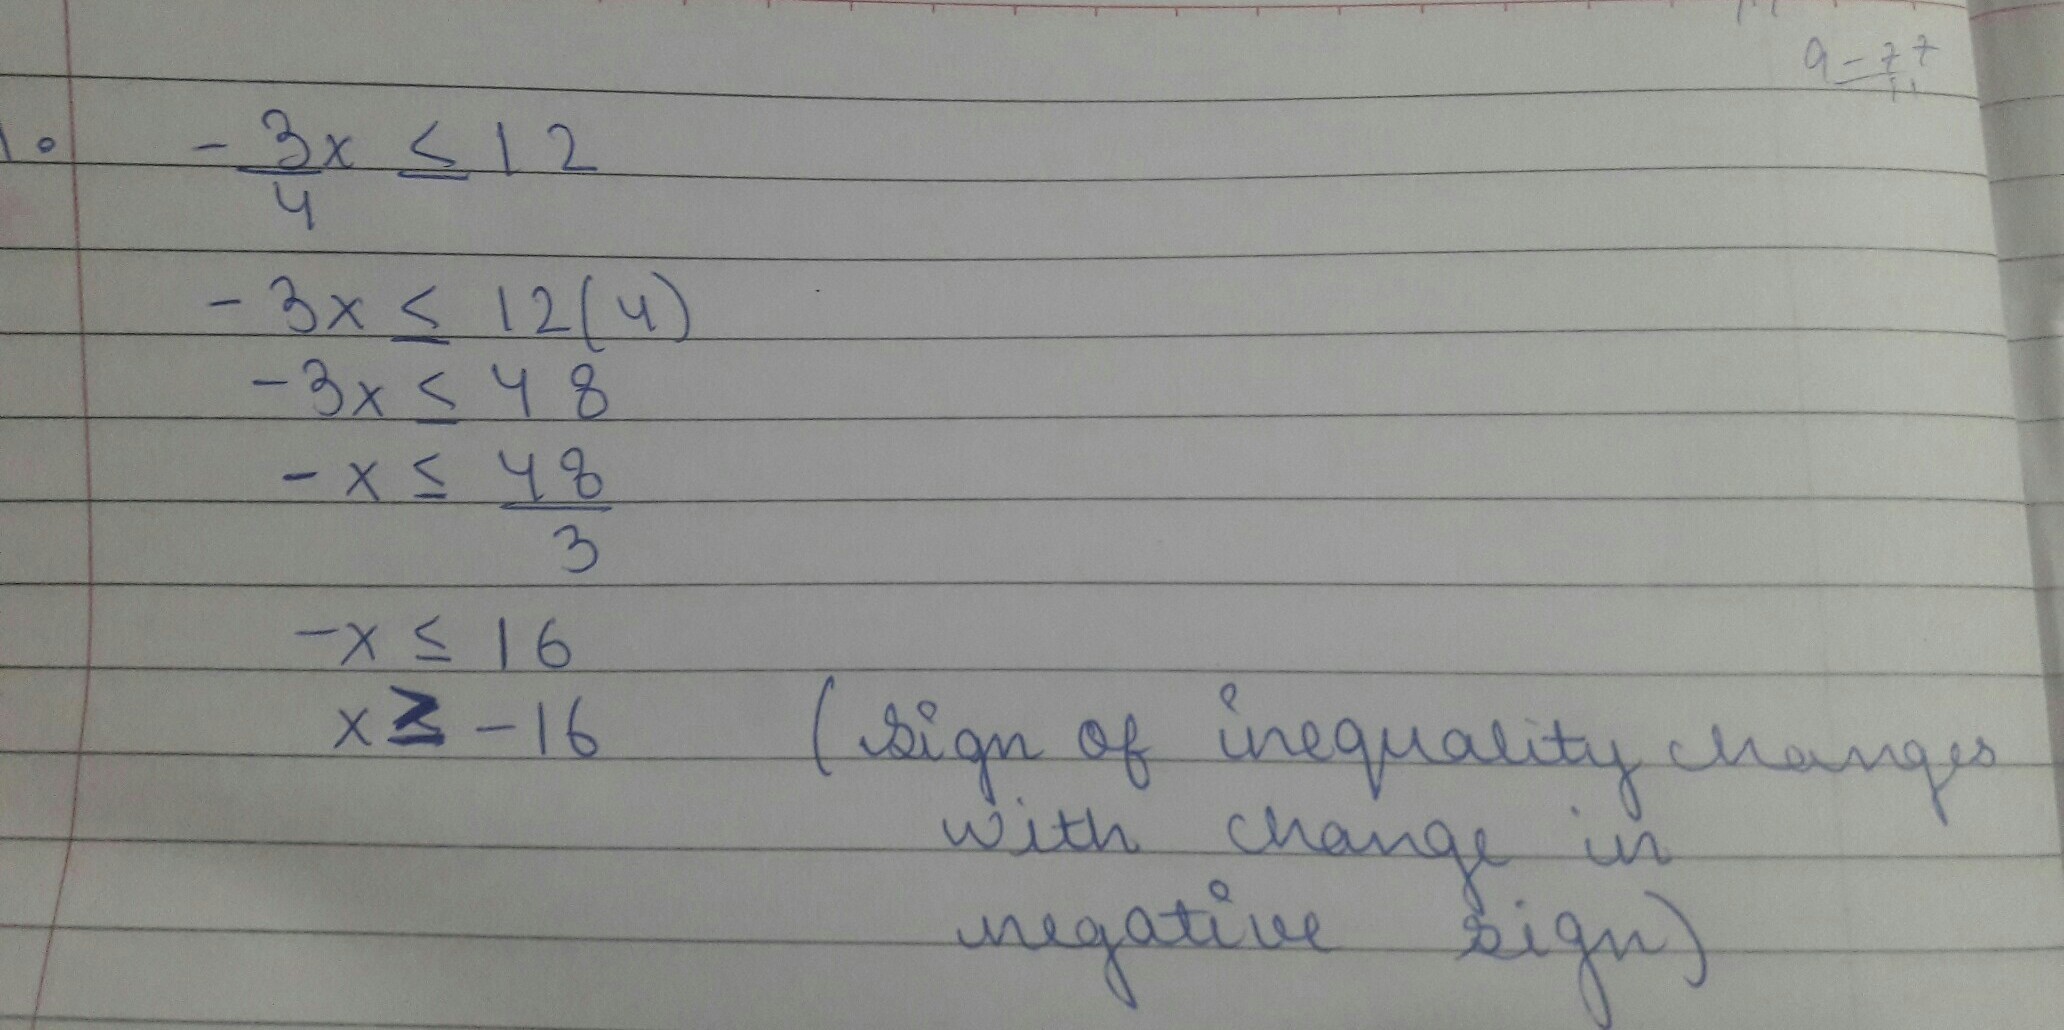 1. -3x ≤ 12
4
-3x ≤ 12(4)
-3x ≤ 48
-x ≤ 48
3
-x ≤ 16
x ≥ -16 (sign of inequality changes
with change in
negative sign)